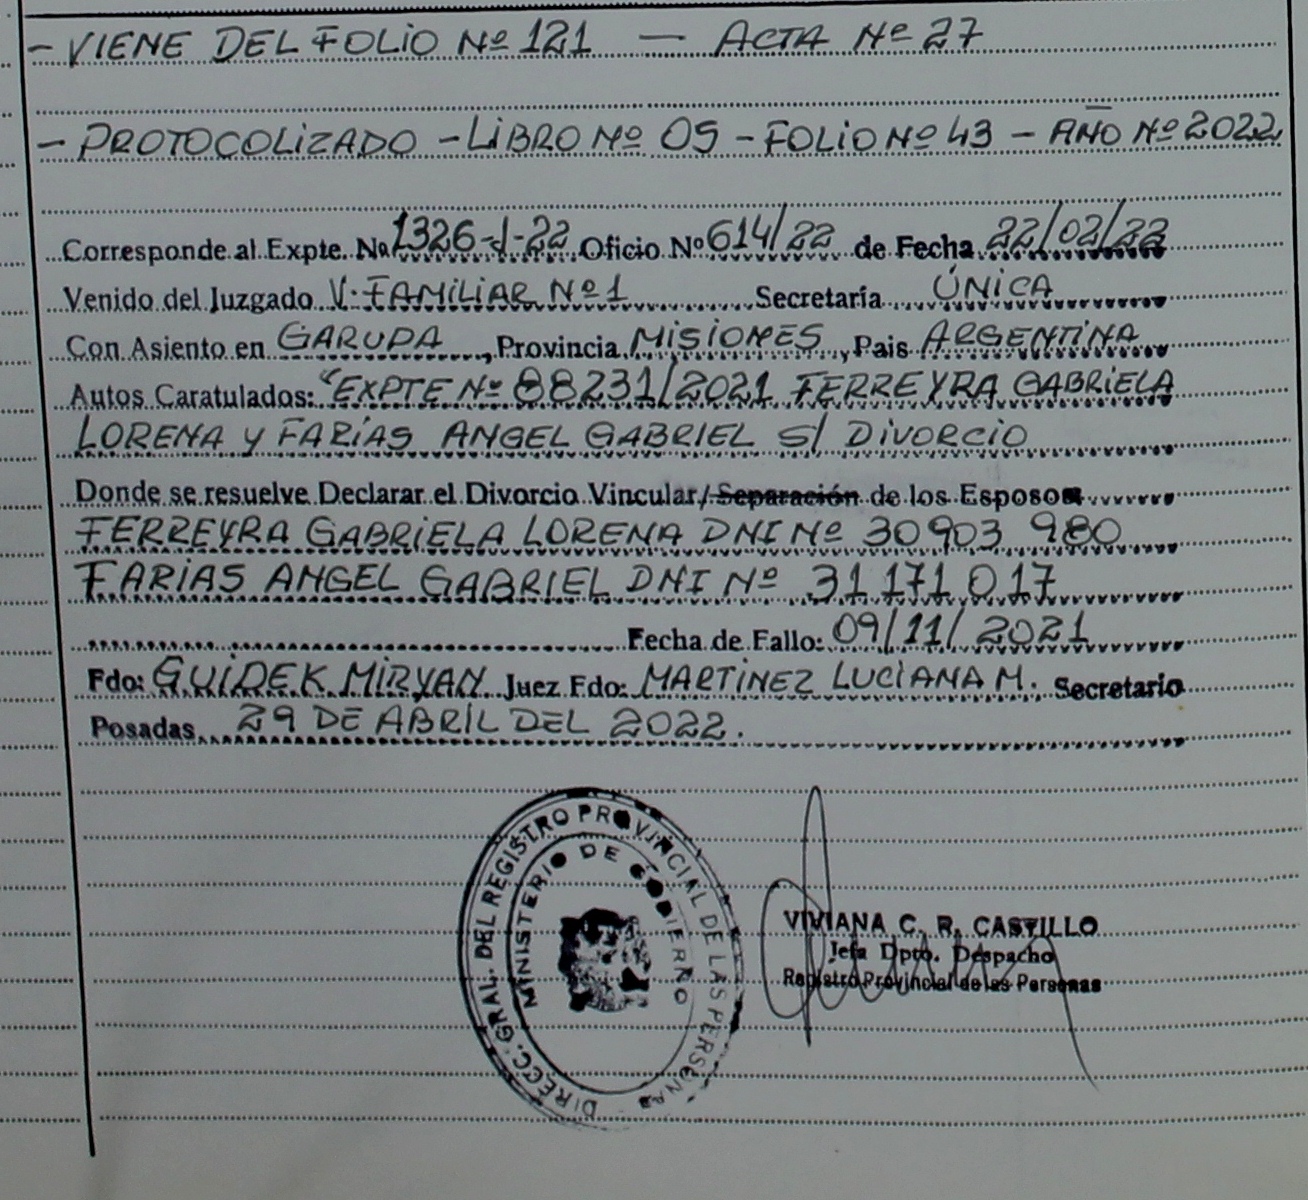 - VIENE DEL FOLIO Nº 121 — ACTA Nº 27
- PROTOCOLIZADO - LIBRO Nº 05 - FOLIO Nº 43 - AÑO Nº 2022
Corresponde al Expte. Nº 1326-J-22 Oficio Nº 614/22 de Fecha 22/02/22
Venido del Juzgado V. FAMILIAR Nº 1 Secretaría ÚNICA
Con Asiento en GARUPA, Provincia MISIONES, Pais ARGENTINA
Autos Caratulados: "EXPTE Nº 88231/2021 FERREYRA GABRIELA
LORENA Y FARÍAS ANGEL GABRIEL S/ DIVORCIO
Donde se resuelve Declarar el Divorcio Vincular/Separación de los Esposos
FERREYRA GABRIELA LORENA DNI Nº 30903980
FARIAS ANGEL GABRIEL DNI Nº 31171017
Fecha de Fallo: 09/11/2021
Fdo: GUIDEK MIRYAN Juez Fdo: MARTINEZ LUCIANA M. Secretario
Posadas 29 DE ABRIL DEL 2022.
DIRECC. GRAL. DEL REGISTRO PROVINCIAL DE LAS PERSONAS
MINISTERIO DE GOBIERNO
VIVIANA C. R. CASTILLO
Jefa Dpto. Despacho
Registro Provincial de las Personas